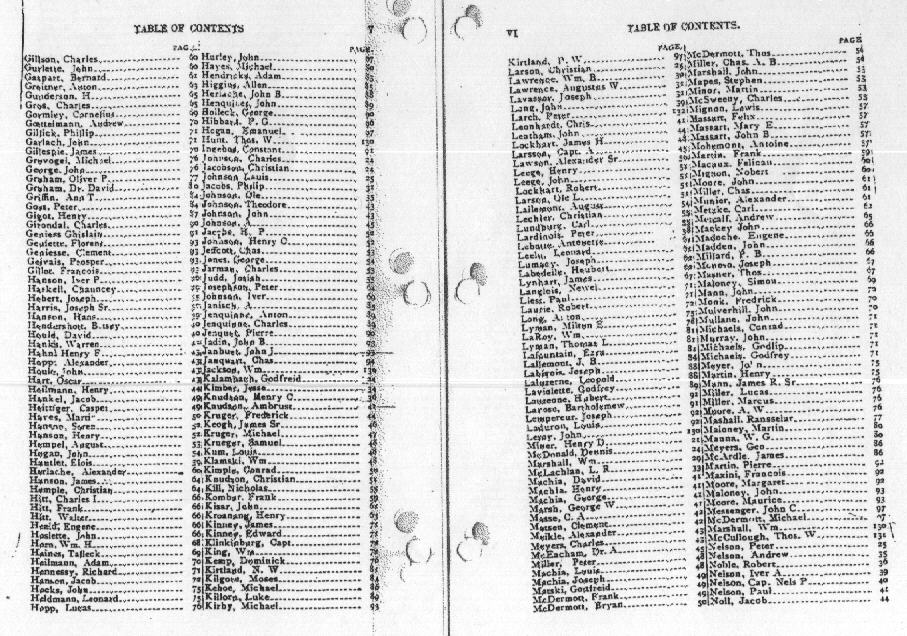 TABLE OF CONTENTS
V
PAGE
Gillson, Charles 60
Gurlette, John 60
Gaspart, Bernard 61
Greimer, Anton 63
Gunderson, H. 65
Gros, Charles 65
Gormley, Cornelius 69
Goettelmann, Andrew 70
Gillick, Phillip 71
Garlach, John 71
Gillespie, James 70
Grevogel, Michael 76
George, John 76
Graham, Oliver P. 77
Graham, Dr. David 80
Griffin, Ann T. 84
Goss, Peter 84
Gigot, Henry 87
Girondal, Charles 90
Geniess Ghislain 91
Geniette, Florent 93
Geniesse, Clement 93
Geivais, Prosper 93
Gilloz, Francois 93
Hanson, Iver P.
Haskell, Chauncey
Hebert, Joseph
Harris, Joseph Sr.
Hanson, Hans
Hendershott, Betsey
Hould, David
Hankis, Warren
Hahnl Henry F.
Hopp, Alexander
Houle, John
Hart, Oscar
Heilmann, Henry
Hankel, Jacob 49
Heittiger, Casper 49
Hayes, Martin
Hansne, Soren
Hanson, Henry
Hempel, August
Hogan, John 54
Hantlet, Elois 59
Herlache, Alexander 60
Hanson, James 64
Hemple, Christian 64
Hitt, Charles I. 66
Hitt, Frank 66
Hitt, Walter 66
Herald, Eugene 66
Hoslette, John 66
Horn, Wm. H. 68
Haines, Talleck 69
Heilmann, Adam 70
Hennessy, Richard 71
Hanson, Jacob 72
Hocks, John 75
Heldmann, Leonard 75
Hopp, Lucas 76
PAGE
Hurley, John 67
Hayes, Michael 80
Hendricks, Adam 85
Higgins, Allen 85
Herlache, John B. 88
Henquinet, John 89
Holleck, George 90
Hibbard, P. G. 96
Hogan, Emanuel 97
Hunt, Thos. W. 130
Ingebos, Constant 91
Johnson, Charles 24
Jacobson, Christian 24
Johnson Louis 25
Jacobs, Philip 31
Johnson, Ole 35
Johnson, Theodore 40
Johnson, John 43
Johnson, A. 45
Jacobs, H. P.
Johnson, Henry C. 52
Jeffcott, Chas. 53
Jones, George 54
Jarman, Charles 53
Judd, Josiah
Josephson, Peter 64
Johnson, Iver 60
Janisch, A. 85
Jenquiane, Anton 89
Jenquine, Charles 89
Jenquet, Pierre 90
Jadin, John B. 93
Janbuet, John J. 93
Janquart, Chas. 94
Jackson, Wm. 130
Kalambach, Godfreid 24
Kimber, Jesse 34
Knudson, Henry C. 36
Knudson, Ambrust 42
Kruger, Frederick 44
Keogh, James Sr. 46
Kruger, Michael 47
Krueger, Samuel 48
Kum, Louis 48
Klamski, Wm. 48
Kimple, Conrad 50
Knudson, Christian 51
Kill, Nicholas 55
Kombar, Frank 59
Kisar, John 62
Kroanang, Henry 63
Kinney, James 72
Kinney, Edward 72
Klinkinburg, Capt. 78
King, Wm. 78
Kemp, Dominick 78
Kirtland, N. W. 81
Kilgore, Moses 84
Kehoe, Michael 88
Killoro, Luke 89
Kirby, Michael 93
VI
TABLE OF CONTENTS.
PAGE
Kirtland, P. W. 97
Larson, Christian 25
Lawrence, Wm. B. 30
Lawrence, Augustus W. 31
Lavassor, Joseph 32
Long, John 39
Larch, Peter 132
Leonhardt, Chris. 41
Leatham, John 44
Lockhart, James H. 48
Larsson, Capt. A. 45
Lawson, Alexander Sr. 50
Leege, Henry 51
Leege, John 51
Lockhart, Robert 51
Larson, Ole L. 54
Lallemont, August 58
Lechler, Christian 58
Lundburg, Carl 58
Lardinois, Peter 58
Leboutte, Antonette
Leclu, Leonard
Lumaey, Joseph 62
Labedelle, Heubert 67
Lynhart, James 71
Langlois, Newel 71
Liess, Paul 72
Laurie, Robert 75
Long, Anton 78
Lyman, Milton E. 81
LaRoy, Wm. 81
Lyman, Thomas L. 82
Lafountain, Ezra 84
Lallemont, J. B. 88
Labirois, Joseph 88
Laluzerne, Leopold 89
Laviolette, Godfrey 90
Lauscone, Hubert 91
Larose, Bartholemew 92
Lempereur, Joseph 92
Laduron, Louis
Leroy, John 130
Miner, Henry D. 21
McDonald, Dennis 24
Marshall, Wm. 29
McLachlan, L. R. 33
Machia, David 41
Machia, Henry 41
Machia, George 41
Marsh, George W. 42
Masse, C. A. 42
Matsen, Clement 43
Meikle, Alexander 43
Meyers, Charles 45
McEacham, Dr. A. 48
Miller, Peter 48
Machia, Louis 49
Machia, Joseph 49
Matski, Godfreid 49
McDermott, Frank 49
McDermott, Bryan 50
PAGE
McDermott, Thos. 54
Miller, Chas. A. B. 54
Marshall, John 53
Mapes, Stephen 53
Minor, Martin 53
McSweeny, Charles 53
Mignon, Lewis 57
Massart, Felix 57
Massart, Mary E. 57
Massart, John B. 57
Mohemont, Antoine 57
Martin, Frank 59
Macaux, Felicau 60
Mignon, Nobert 60
Moore, John 61
Miller, Chas. 61
Munier, Alexander 61
Metzke, Carl 62
Metcalf, Andrew 65
Mackey John 66
Madoche, Eugene 66
Madden, John 66
Millard, P. B. 66
Moneva, Joseph 67
Masner, Thos. 67
Maloney, Simon 69
Mann, John 70
Monk, Fredrick 70
Mulverhill, John 71
Mullane, John 71
Michaels, Conrad 71
Murray, John 71
Michaels, Godlip 71
Michaels, Godfrey 71
Meyer, John 75
Martin, Henry 75
Mann, James R. Sr. 76
Miller, Lucas 76
Miller, Marcus 76
Moore, A. W. 76
Mashall, Ransselar 77
Maloney, Martin 80
Manna, W. G. 80
Meyers, Geo. 86
McArdle, James 86
Martin, Pierre 92
Maxini, Francois 92
Moore, Margaret 92
Maloney, John 93
Moore, Maurice 93
Messenger, John C. 97
McDermott, Michael 77
Marshall, Wm. 130
McCullough, Thos. W. 131
Nelson, Peter 25
Nelson, Andrew 35
Noble, Robert 36
Nelson, Iver A. 39
Nelson, Cap. Nels P. 40
Nelson, Paul 41
Noll, Jacob 44